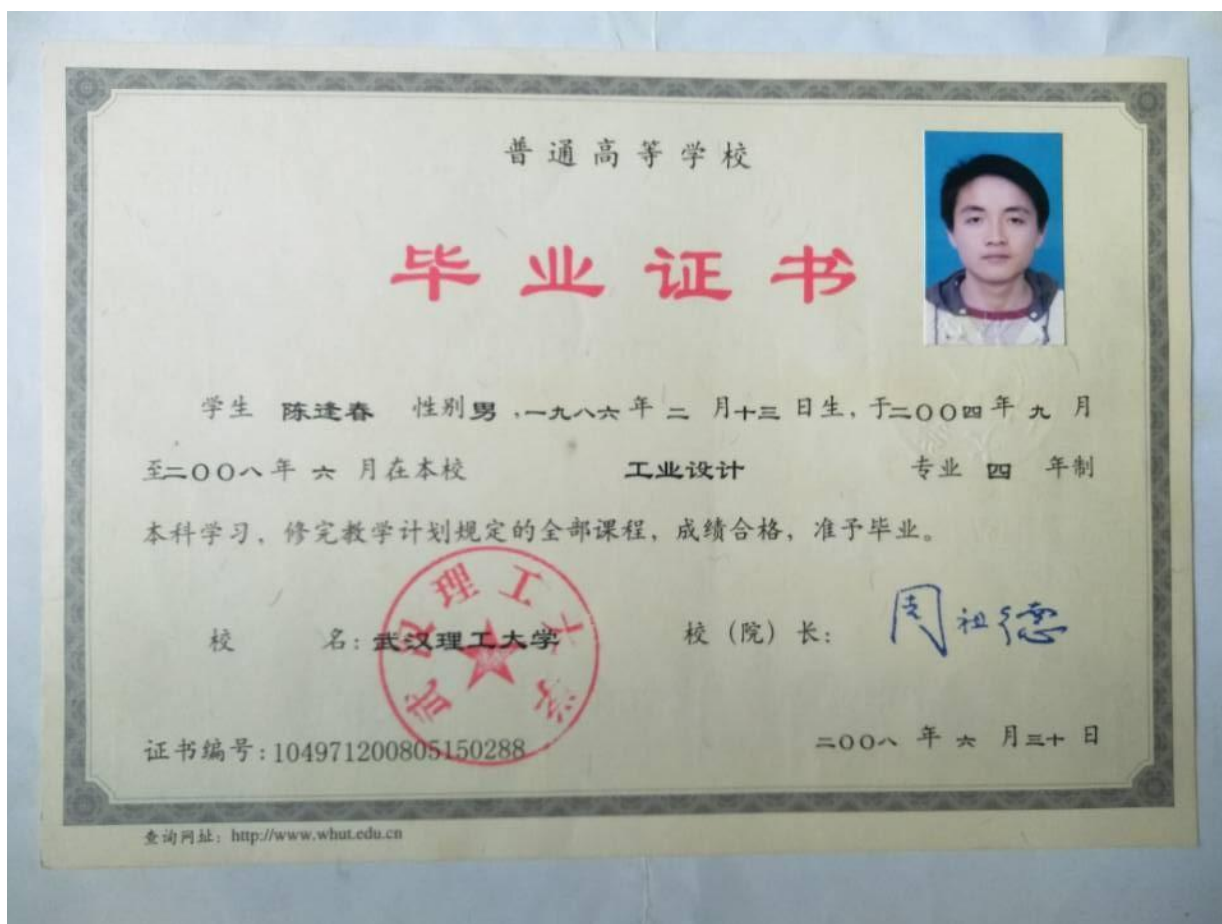 普通高等学校
毕业证书
学生 陈逢春 性别男,一九八六年 二 月十三 日生,于二〇〇四年 九 月
至二〇〇八年 六 月在本校 工业设计 专业 四 年制
本科学习,修完教学计划规定的全部课程,成绩合格,准予毕业。
校 名:武汉理工大学 校(院)长: 周祖德
武汉理工大学
证书编号:104971200805150288 二〇〇八 年 六 月三十 日
查询网址:http://www.whut.edu.cn